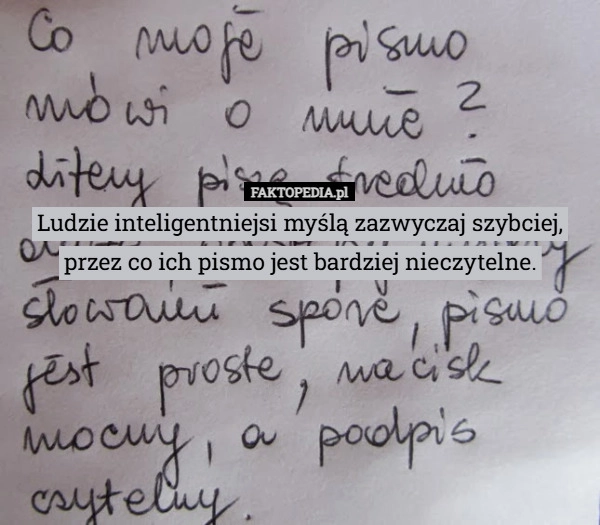 Co moje pismo
mówi o mnie?
Litery piszę średnio
FAKTOPEDIA.pl
Ludzie inteligentniejsi myślą zazwyczaj szybciej,
przez co ich pismo jest bardziej nieczytelne.
słowami spore, pismo
jest proste, nacisk
mocny, a podpis
czytelny.